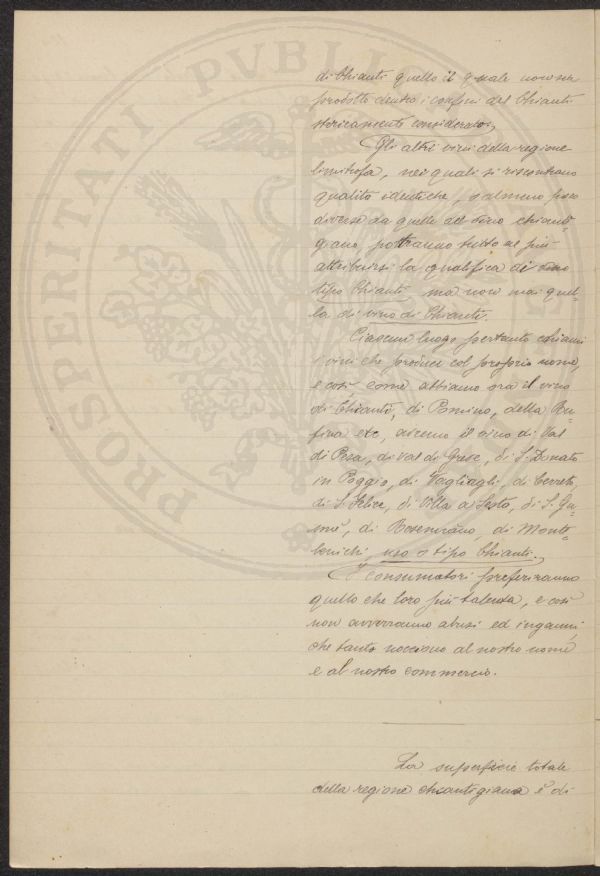 PROSPERITATI PVBLICAE
di Chianti quello il quale non sia
prodotto dentro i confini del Chianti
storicamente considerato.
Gli altri vini della regione
limitrofa, nei quali si riscontrano
qualità identiche, o almeno poco
diverse da quelle del vino chianti-
giano potranno tutto al più
attribuirsi la qualifica di vino
tipo Chianti ma non mai quel-
la di vino di Chianti.
Ciascun luogo pertanto chiami
i vini che produce col proprio nome,
e così, come abbiamo ora il vino
di Chianti, di Pomino, della Ru-
fina etc, avremo il vino di Val
di Pesa, di Val di Greve, di S. Donato
in Poggio, di Vagliagli, di Cerreto,
di S. Felice, di Villa a Sesto, di S. Gu-
smè, di Resenmano, di Monte-
benichi, uso o tipo Chianti.
I consumatori preferiranno
quello che loro più talenta, e così
non avverranno abusi ed inganni,
che tanto nocciono al nostro nome
e al nostro commercio.
La superficie totale
della regione chiantigiana è di